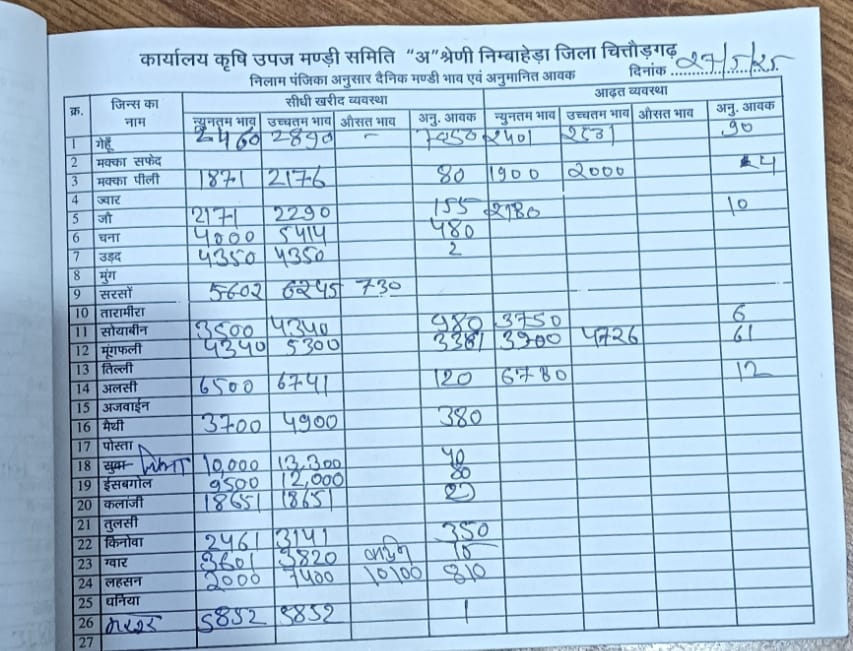 कार्यालय कृषि उपज मण्डी समिति "अ" श्रेणी निम्बाहेड़ा जिला चित्तौड़गढ़
निलाम पंजिका अनुसार दैनिक मण्डी भाव एवं अनुमानित आवक दिनांक 27/5/25
क्र. जिन्स का नाम सीधी खरीद व्यवस्था आढ़त व्यवस्था
न्युनतम भाव उच्चतम भाव औसत भाव अनु. आवक न्युनतम भाव उच्चतम भाव औसत भाव अनु. आवक
1 गेहूँ 2460 2890 - 2401 90
2 मक्का सफेद
3 मक्का पीली 1871 2176 80 1900 2000 4
4 ज्वार
5 जौ 2171 2290 155 2180 10
6 चना 4000 5414 480
7 उड़द 4350 4350 2
8 मुंग
9 सरसों 5602 6245 730
10 तारामीरा
11 सोयाबीन 3500 4340 980 3750 6
12 मूंगफली 4340 5300 3381 3900 4726 61
13 तिल्ली
14 अलसी 6500 6741 120 6780 12
15 अजवाईन
16 मैथी 3700 4900 380
17 पोस्ता
18 सुवा 10,000 13,300 40
19 ईसबगोल 9500 12,000
20 कलांजी 18651 18651
21 तुलसी
22 किनोवा 2461 3141 350
23 ग्वार 3601 3820 15
24 लहसन 2000 7400 10100 810
25 धनिया
26 5852 5852 1
27